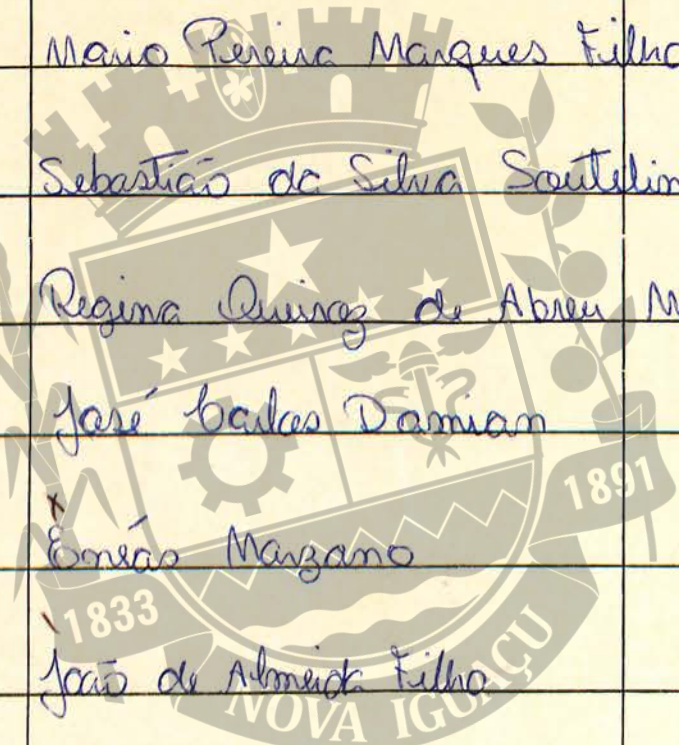 Mario Pereira Marques Filho
Sebastião da Silva
Regina Queiroz de Abreu M
José Carlos Damian
Enéas Marzano
João de Almeida Filho
1891
1833
NOVA IGUAÇU